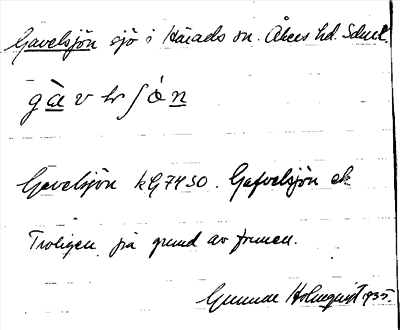 Gavelsjön sjö i Härads sn. Åkers hd. Sdml.
g à v ſ ó n
Gavelsjön kG7450. Gafvelsjön ek
Troligen på grund av formen.
Gunnar Holmquist 1935.